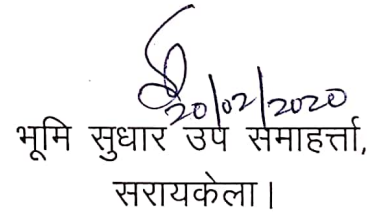 20/02/2020
भूमि सुधार उप समाहर्त्ता,
सरायकेला।